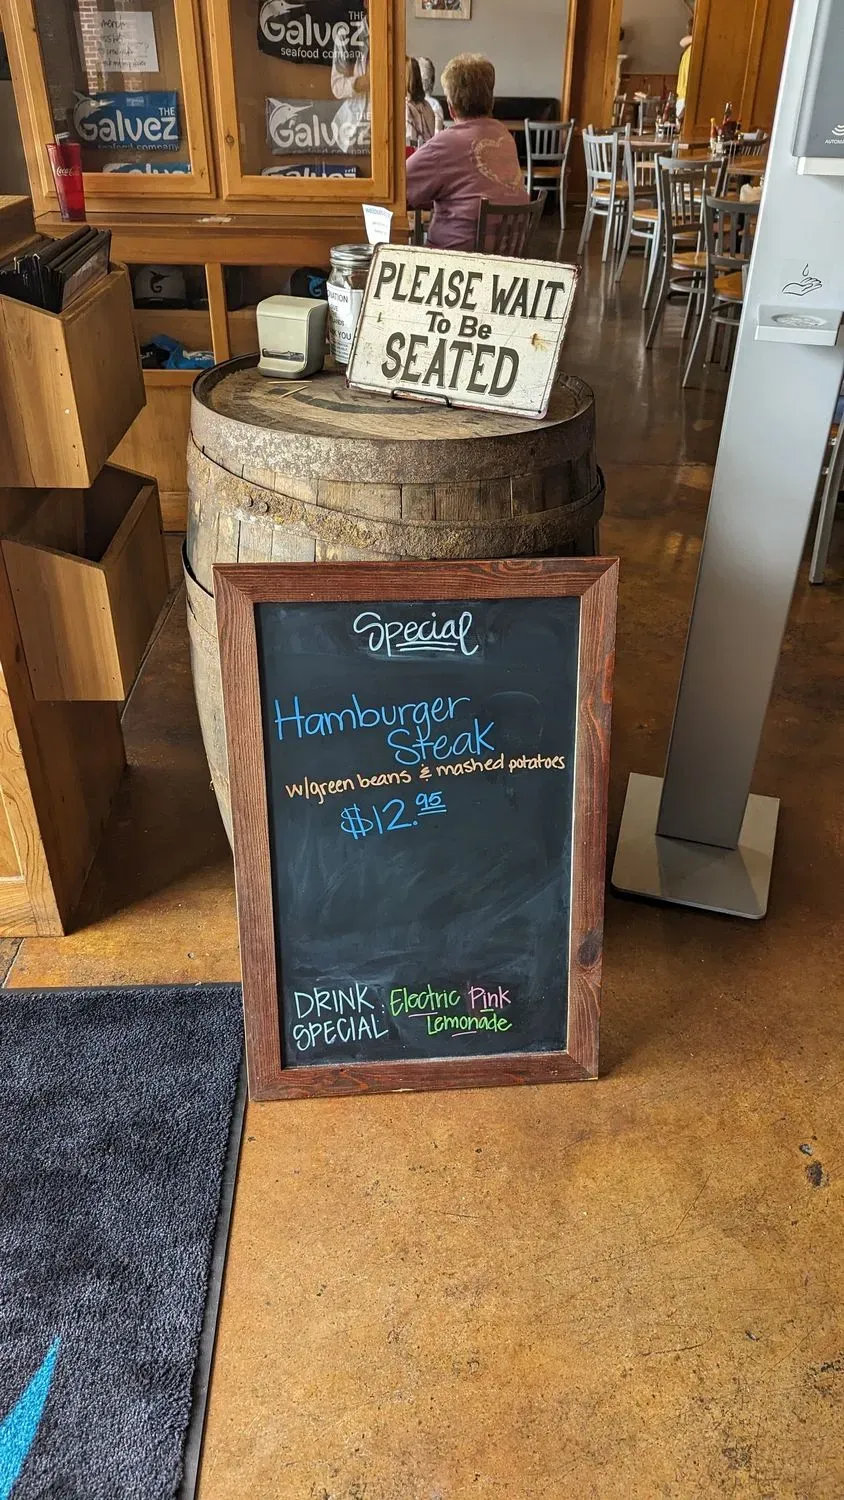 THE
Galvez
seafood company
THE
Galvez
seafood company
THE
Galvez
Coca-Cola
PLEASE WAIT
To Be
SEATED
Special
Hamburger
Steak
w/green beans & mashed potatoes
$12.95
DRINK : Electric Pink
SPECIAL Lemonade